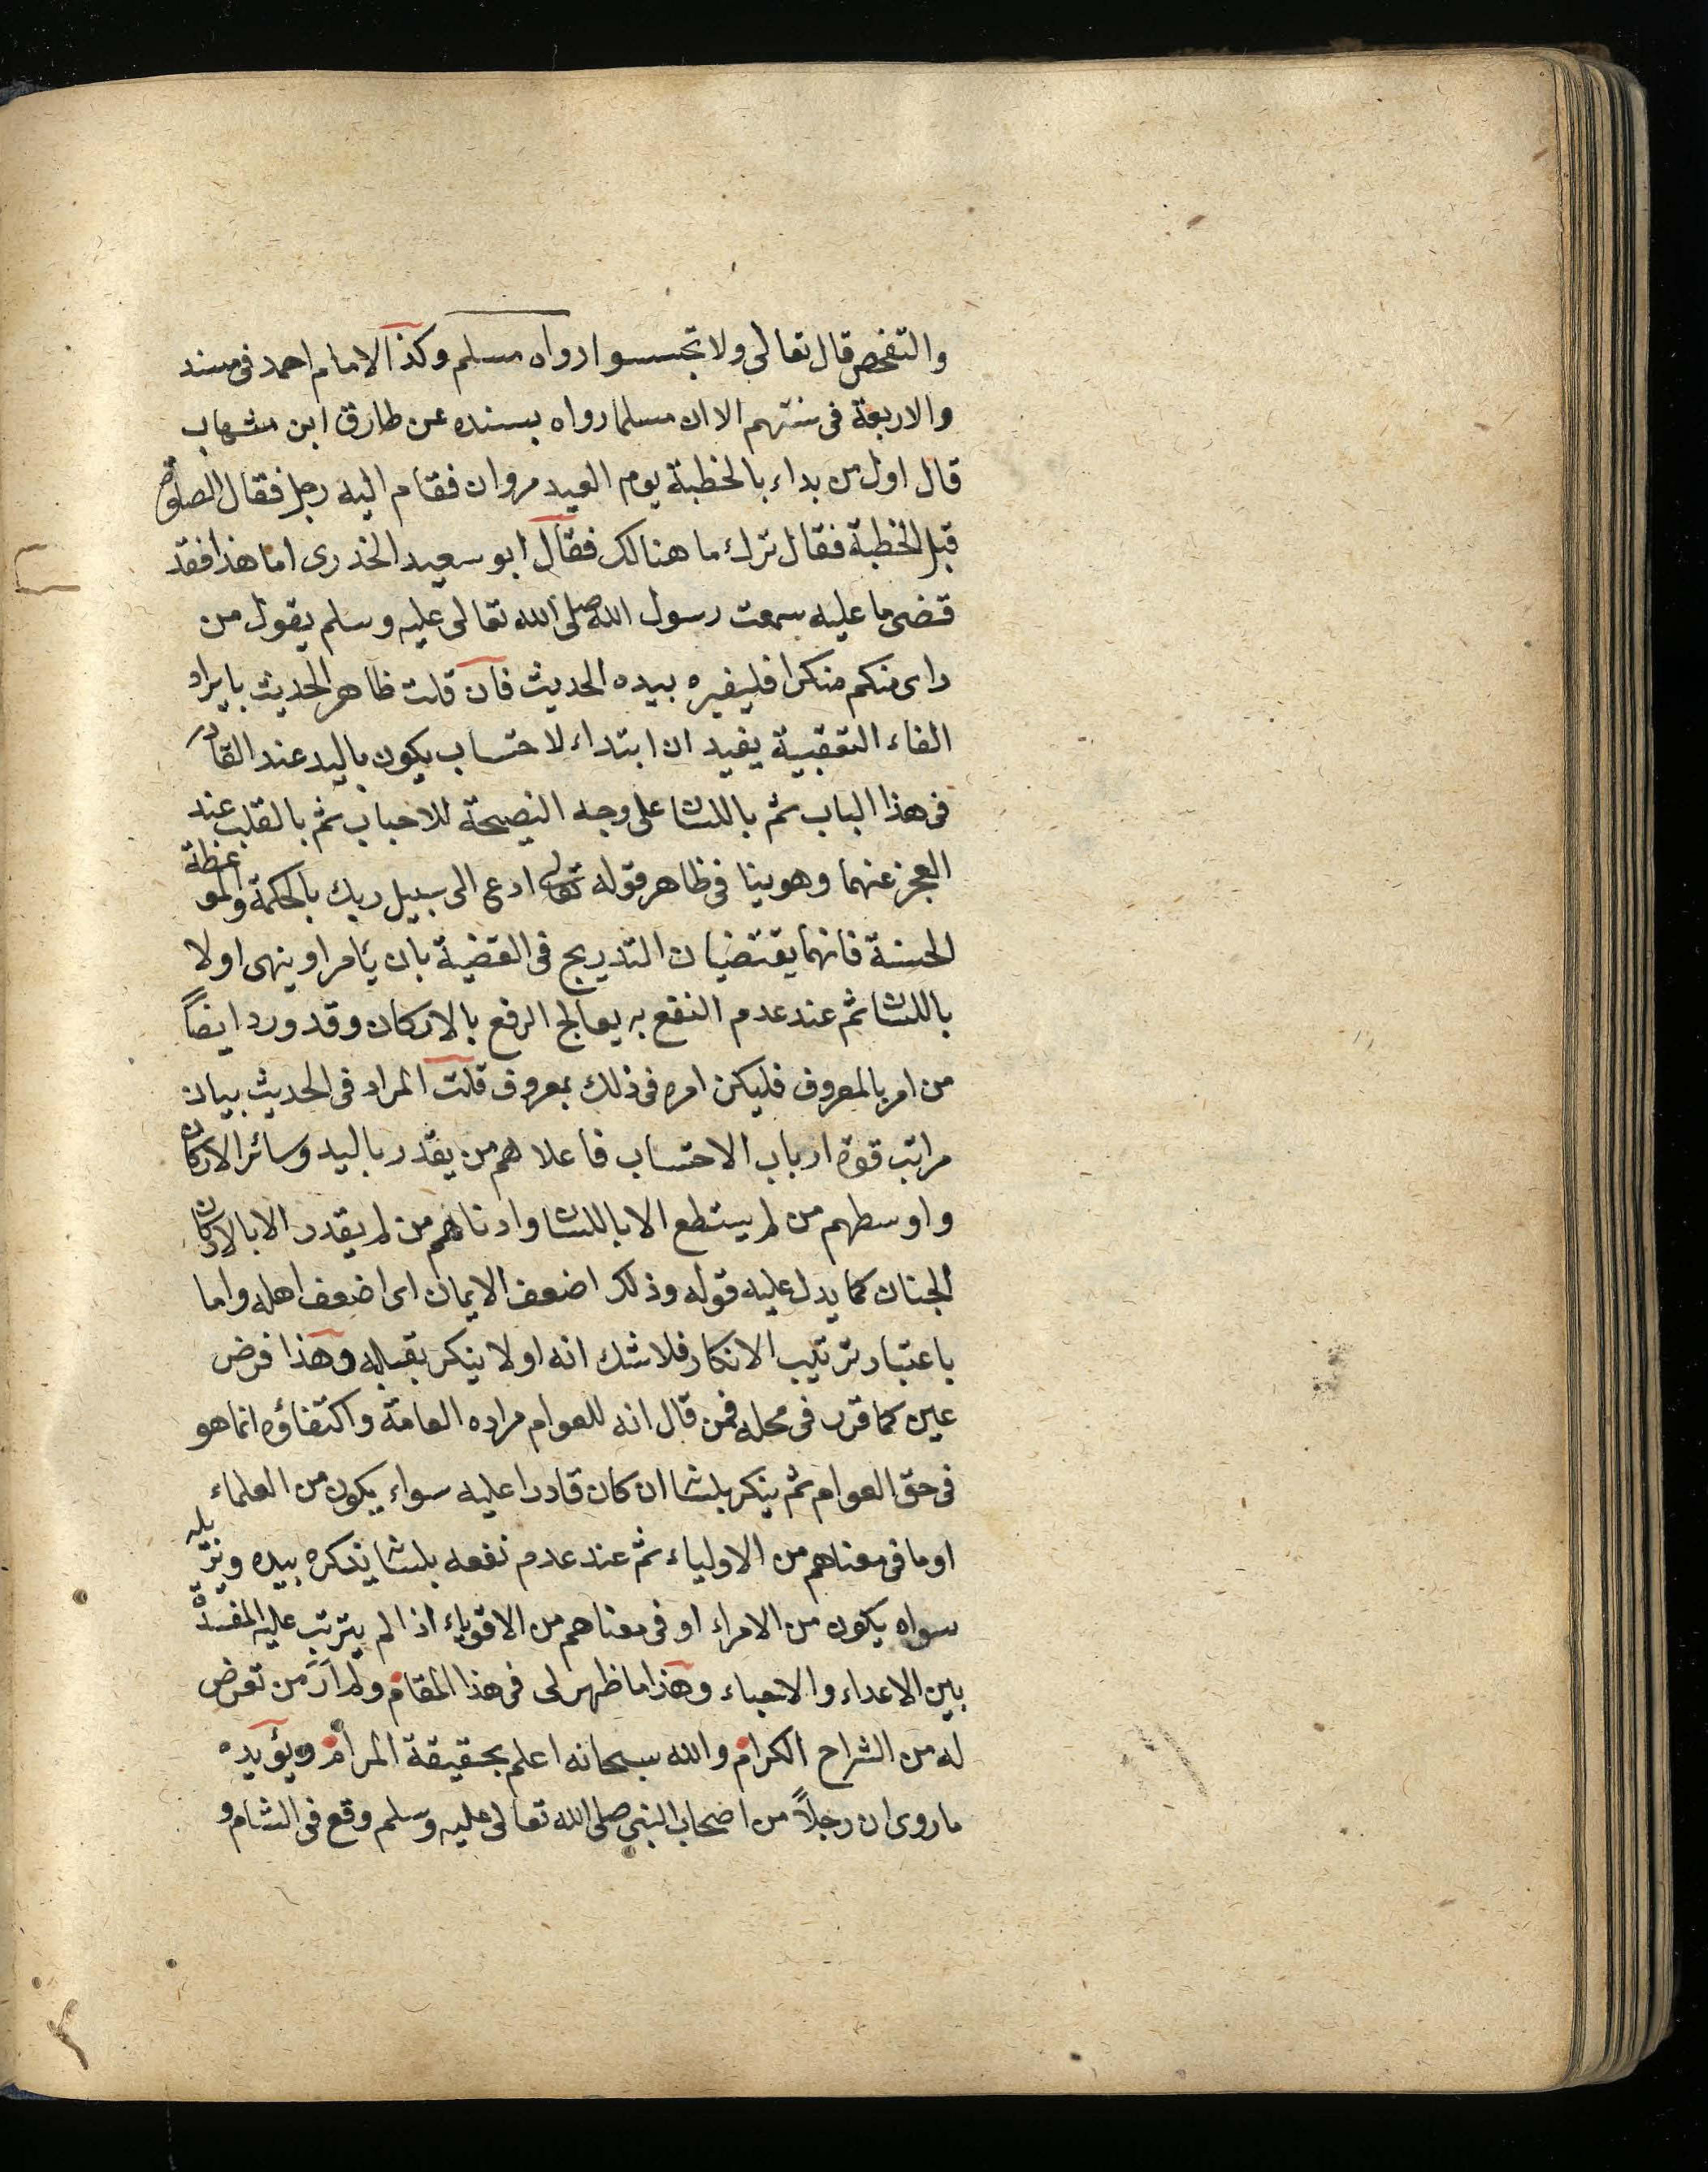 والتفحص قال تعالى ولا تجسسوا رواه مسلم وكذا الامام احمد فى مسند
والاربعة فى سننهم الا ان مسلما رواه بسنده عن طارق ابن شهاب
قال اول من بداء بالخطبة يوم العيد مروان فقام اليه رجل فقال الصلوة
قبل الخطبة فقال ترك ما هنالك فقال ابو سعيد الخدرى اما هذا فقد
قضى ما عليه سمعت رسول الله صلى الله تعالى عليه وسلم يقول من
راى منكم منكرا فليغيره بيده الحديث فان قلت ظاهر الحديث بايراد
الفاء التعقبية يفيد ان ابتداء لاحتساب يكون باليد عند القادر
فى هذا الباب ثم باللسان على وجه النصيحة للاحباب ثم بالقلب عند
العجز عنهما وهو ينافى ظاهر قوله تعالى ادع الى سبيل ربك بالحكمة والموعظة
الحسنة فانهما يقتضيان التدريج فى القضية بان يأمر او ينهى اولا
باللسان ثم عند عدم النفع به يعالج الرفع بالاركان وقد ورد ايضاً
من امر بالمعروف فليكن امره فى ذلك بمعروف قلت المراد فى الحديث بيان
مراتب قوة ارباب الاحتساب فاعلاهم من يقدر باليد وسائر الاركان
واوسطهم من لم يستطع الا باللسان وادناهم من لم يقدر الا بالاركان
الجنان كما يدل عليه قوله وذلك اضعف الايمان اى اضعف اهله واما
باعتبار ترتيب الانكار فلا شك انه اولا ينكر بقلبه وهذا فرض
عين كما قرر فى محله فمن قال انه للعوام مراده العامة واكتفاؤه انما هو
فى حق العوام ثم ينكر بلسان ان كان قادرا عليه سواء يكون من العلماء
او ما فى معناهم من الاولياء ثم عند عدم نفعه بلسان ينكره بيده ويزيله
سواء يكون من الامراء او فى معناهم من الاقوياء اذا لم يترتب عليه المفسدة
بين الاعداء والاحباء وهذا ما ظهر لى فى هذا المقام ولم أرَ من تعرض
له من الشراح الكرام والله سبحانه اعلم بحقيقة المرام ويؤيده
ما روى ان رجلاً من اصحاب النبى صلى الله تعالى عليه وسلم وقع فى الشام و